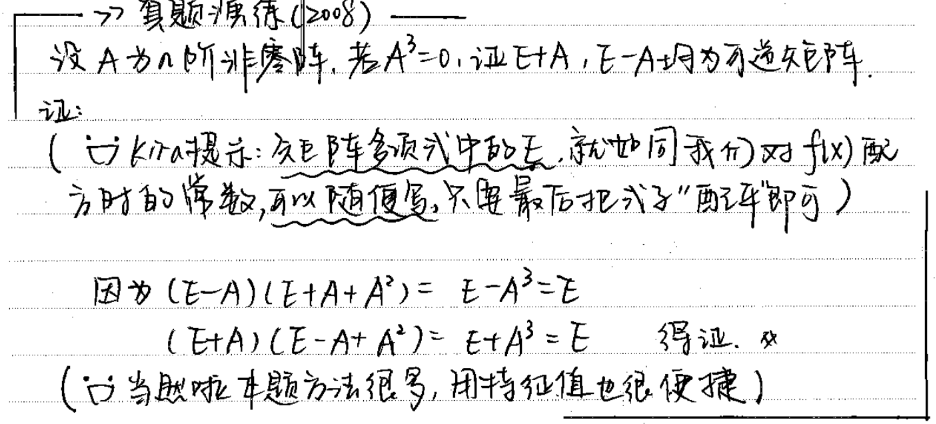 >> 真题演练(2008)
设 A 为 n 阶非零阵, 若 A³=0, 证 E+A, E-A 均为可逆矩阵.
证:
( Kira提示: 矩阵多项式中的E, 就如同我们对 f(x) 配
方时的常数, 可以随便写, 只要最后把式子"配平"即可 )
因为 (E-A)(E+A+A²) = E-A³=E
(E+A)(E-A+A²) = E+A³=E 得证.
( 当然啦 本题方法很多, 用特征值也很便捷 )